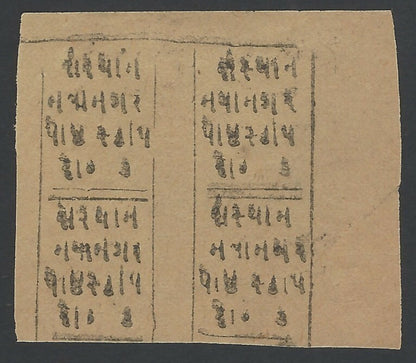 સંસ્થાન
નવાનગર
પોષ્ટ સ્ટાંપ
દો૦ ૩
સંસ્થાન
નવાનગર
પોષ્ટ સ્ટાંપ
દો૦ ૩
સંસ્થાન
નવાનગર
પોષ્ટ સ્ટાંપ
દો૦ ૩
સંસ્થાન
નવાનગર
પોષ્ટ સ્ટાંપ
દો૦ ૩